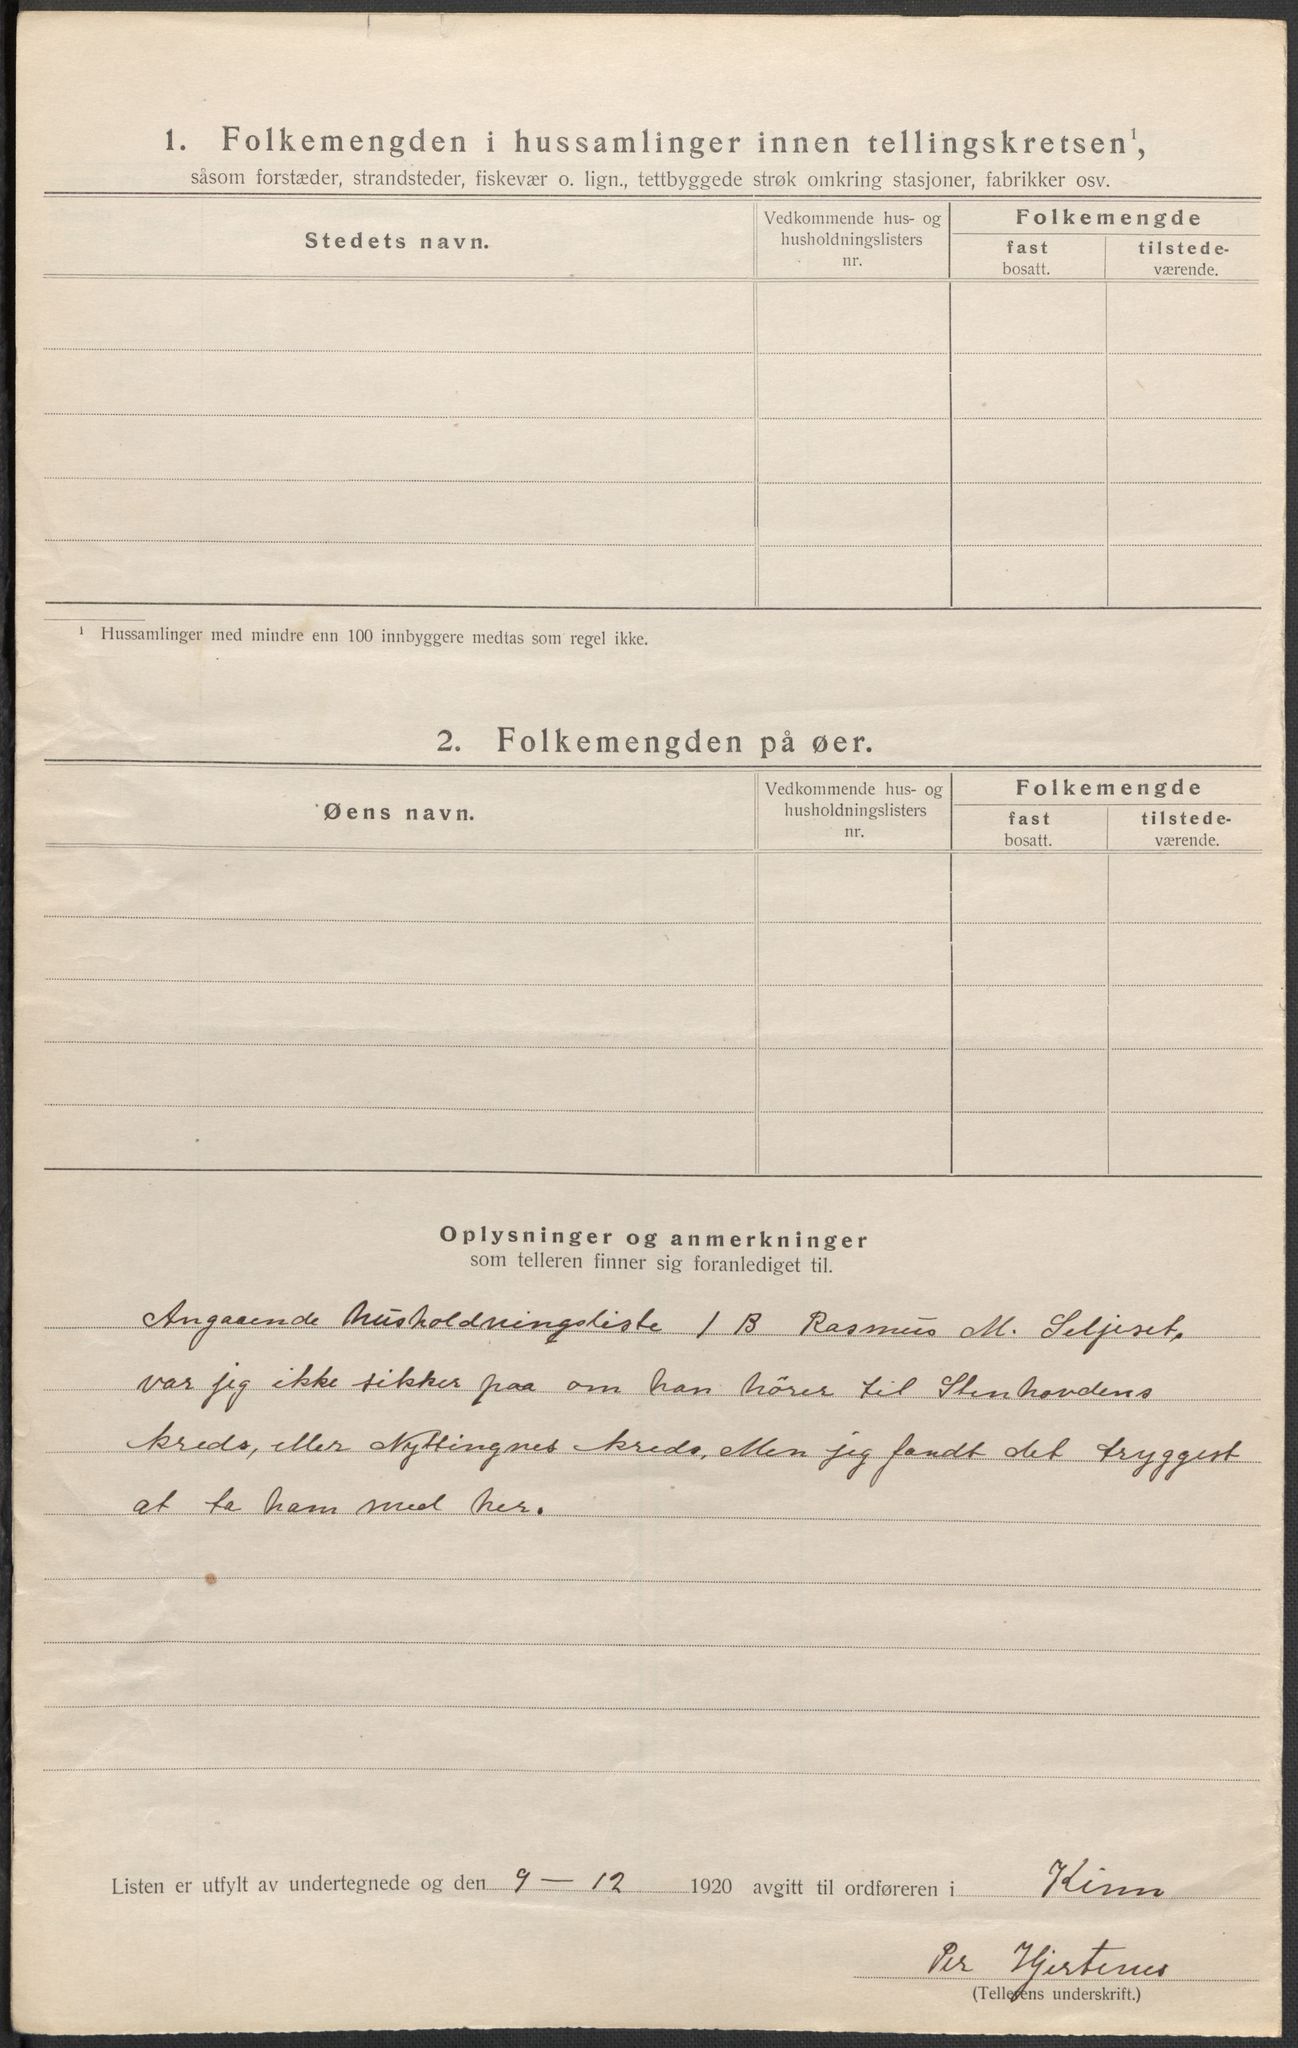 1. Folkemengden i hussamlinger innen tellingskretsen¹,
såsom forstæder, strandsteder, fiskevær o. lign., tettbyggede strøk omkring stasjoner, fabrikker osv.
Stedets navn.
Vedkommende hus- og
husholdningslisters
nr.
Folkemengde
fast
bosatt.
tilstede-
værende.
¹ Hussamlinger med mindre enn 100 innbyggere medtas som regel ikke.
2. Folkemengden på øer.
Øens navn.
Vedkommende hus- og
husholdningslisters
nr.
Folkemengde
fast
bosatt.
tilstede-
værende.
Oplysninger og anmerkninger
som telleren finner sig foranlediget til.
Angaaende husholdningsliste 1 B Rasmus M. Seljeset,
var jeg ikke sikker paa om han hörer til Stenhovdens
kreds, eller Nyttingnes kreds. Men jeg fandt det tryggest
at ta ham med her.
Listen er utfylt av undertegnede og den 9 – 12 1920 avgitt til ordføreren i Kinn
Per Hjertenes
(Tellerens underskrift.)